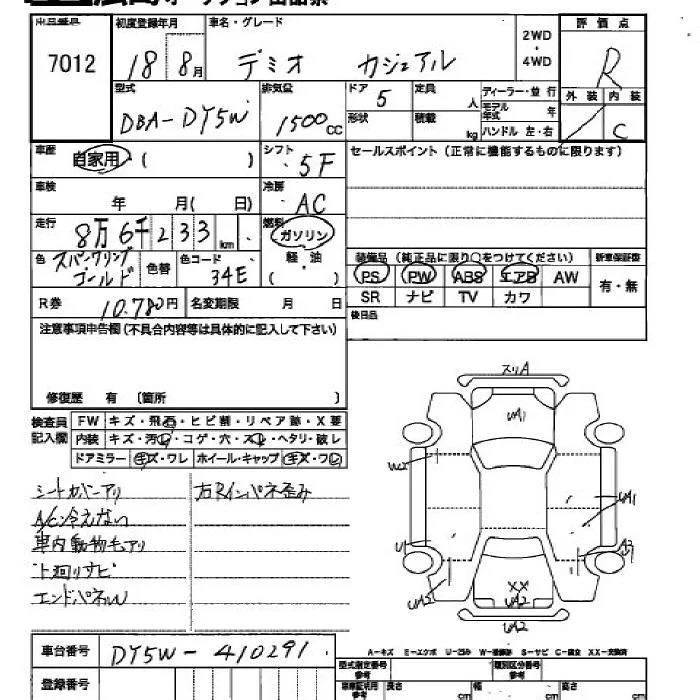 出品番号 初度登録年月 車名・グレード 2WD・4WD 評価点
7012 18 8月 デミオ カジュアル R
型式 排気量 ドア 定員 人 ディーラー・並行 外装 内装
DBA-DY5W 1500cc 5 形状 積載 kg モデル年式 年 ハンドル 左・右 C
車歴 自家用 ( ) シフト 5F セールスポイント (正常に機能するものに限ります)
車検 年 月( 日) 冷房 AC
走行 8万6千233km 燃料 ガソリン
色 スパークリングゴールド 色替 色コード 34E 軽・油 ( ) 装備品 (純正品に限り○をつけてください) 新車保証書
PS PW ABS エアB AW 有・無
R券 10,780円 名変期限 月 日 SR ナビ TV カワ
注意事項申告欄 (不具合内容等は具体的に記入して下さい) 後日品
修復歴 有 〔箇所 〕
検査員記入欄 FW キズ・飛石・ヒビ割・リペア跡・X要
内装 キズ・汚れ・コゲ・穴・スレ・ヘタリ・破レ
ドアミラー キズ・ワレ ホイール・キャップ キズ・ワレ
シートカバーアリ 右Rインパネ歪み
A/C冷えない
車内動物毛アリ
下廻りサビ
エンドパネルU
スリA
UA1
W2
UA1
U1
A3
XX
UA2 UA2
UA2
A-キズ E-エクボ U-凹み W-補修跡 S-サビ C-腐食 XX-交換済
車台番号 DY5W-410291 型式指定番号 参考 類別区分番号 参考
登録番号 車庫証明用 参考 長さ cm 幅 cm 高さ cm